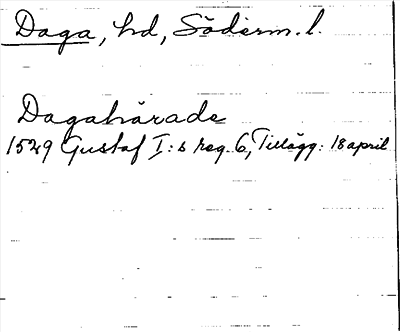 Daga, hd, Söderm. l.
Dagahärade
1529 Gustaf I:s reg. 6, Tillägg: 18 april